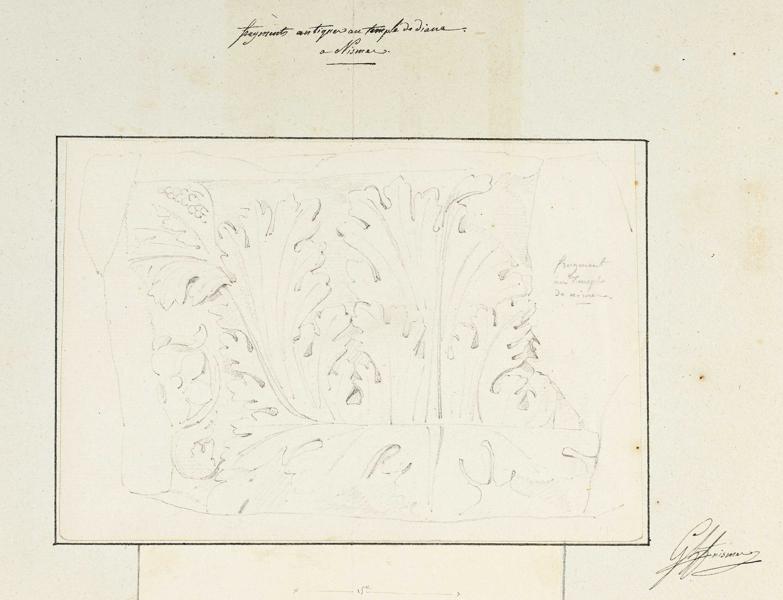 fragments antiques au temple de diane.
a Nismes.
fragment
au temple
de nismes